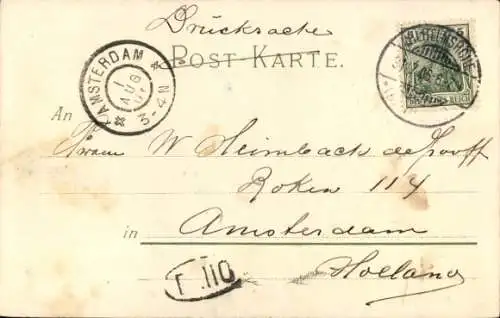 Drucksache
POST KARTE.
AMSTERDAM 4
1
AUG
3-4N
REICH
An
W Heimbach de Hooff
Rokin 114
in Amsterdam
Holland
110